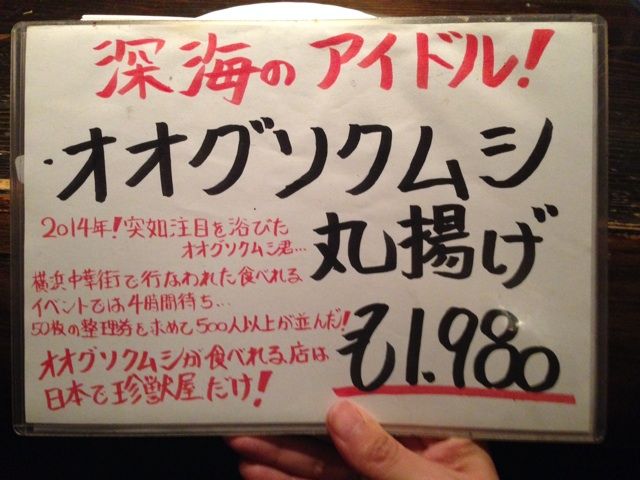 深海のアイドル!
・オオグソクムシ
丸揚げ
2014年!突如注目を浴びた
オオグソクムシ君…
横浜中華街で行なわれた食べれる
イベントでは4時間待ち…
50枚の整理券を求めて500人以上が並んだ!
オオグソクムシが食べれる店は
日本で珍獣屋だけ!
¥1.980